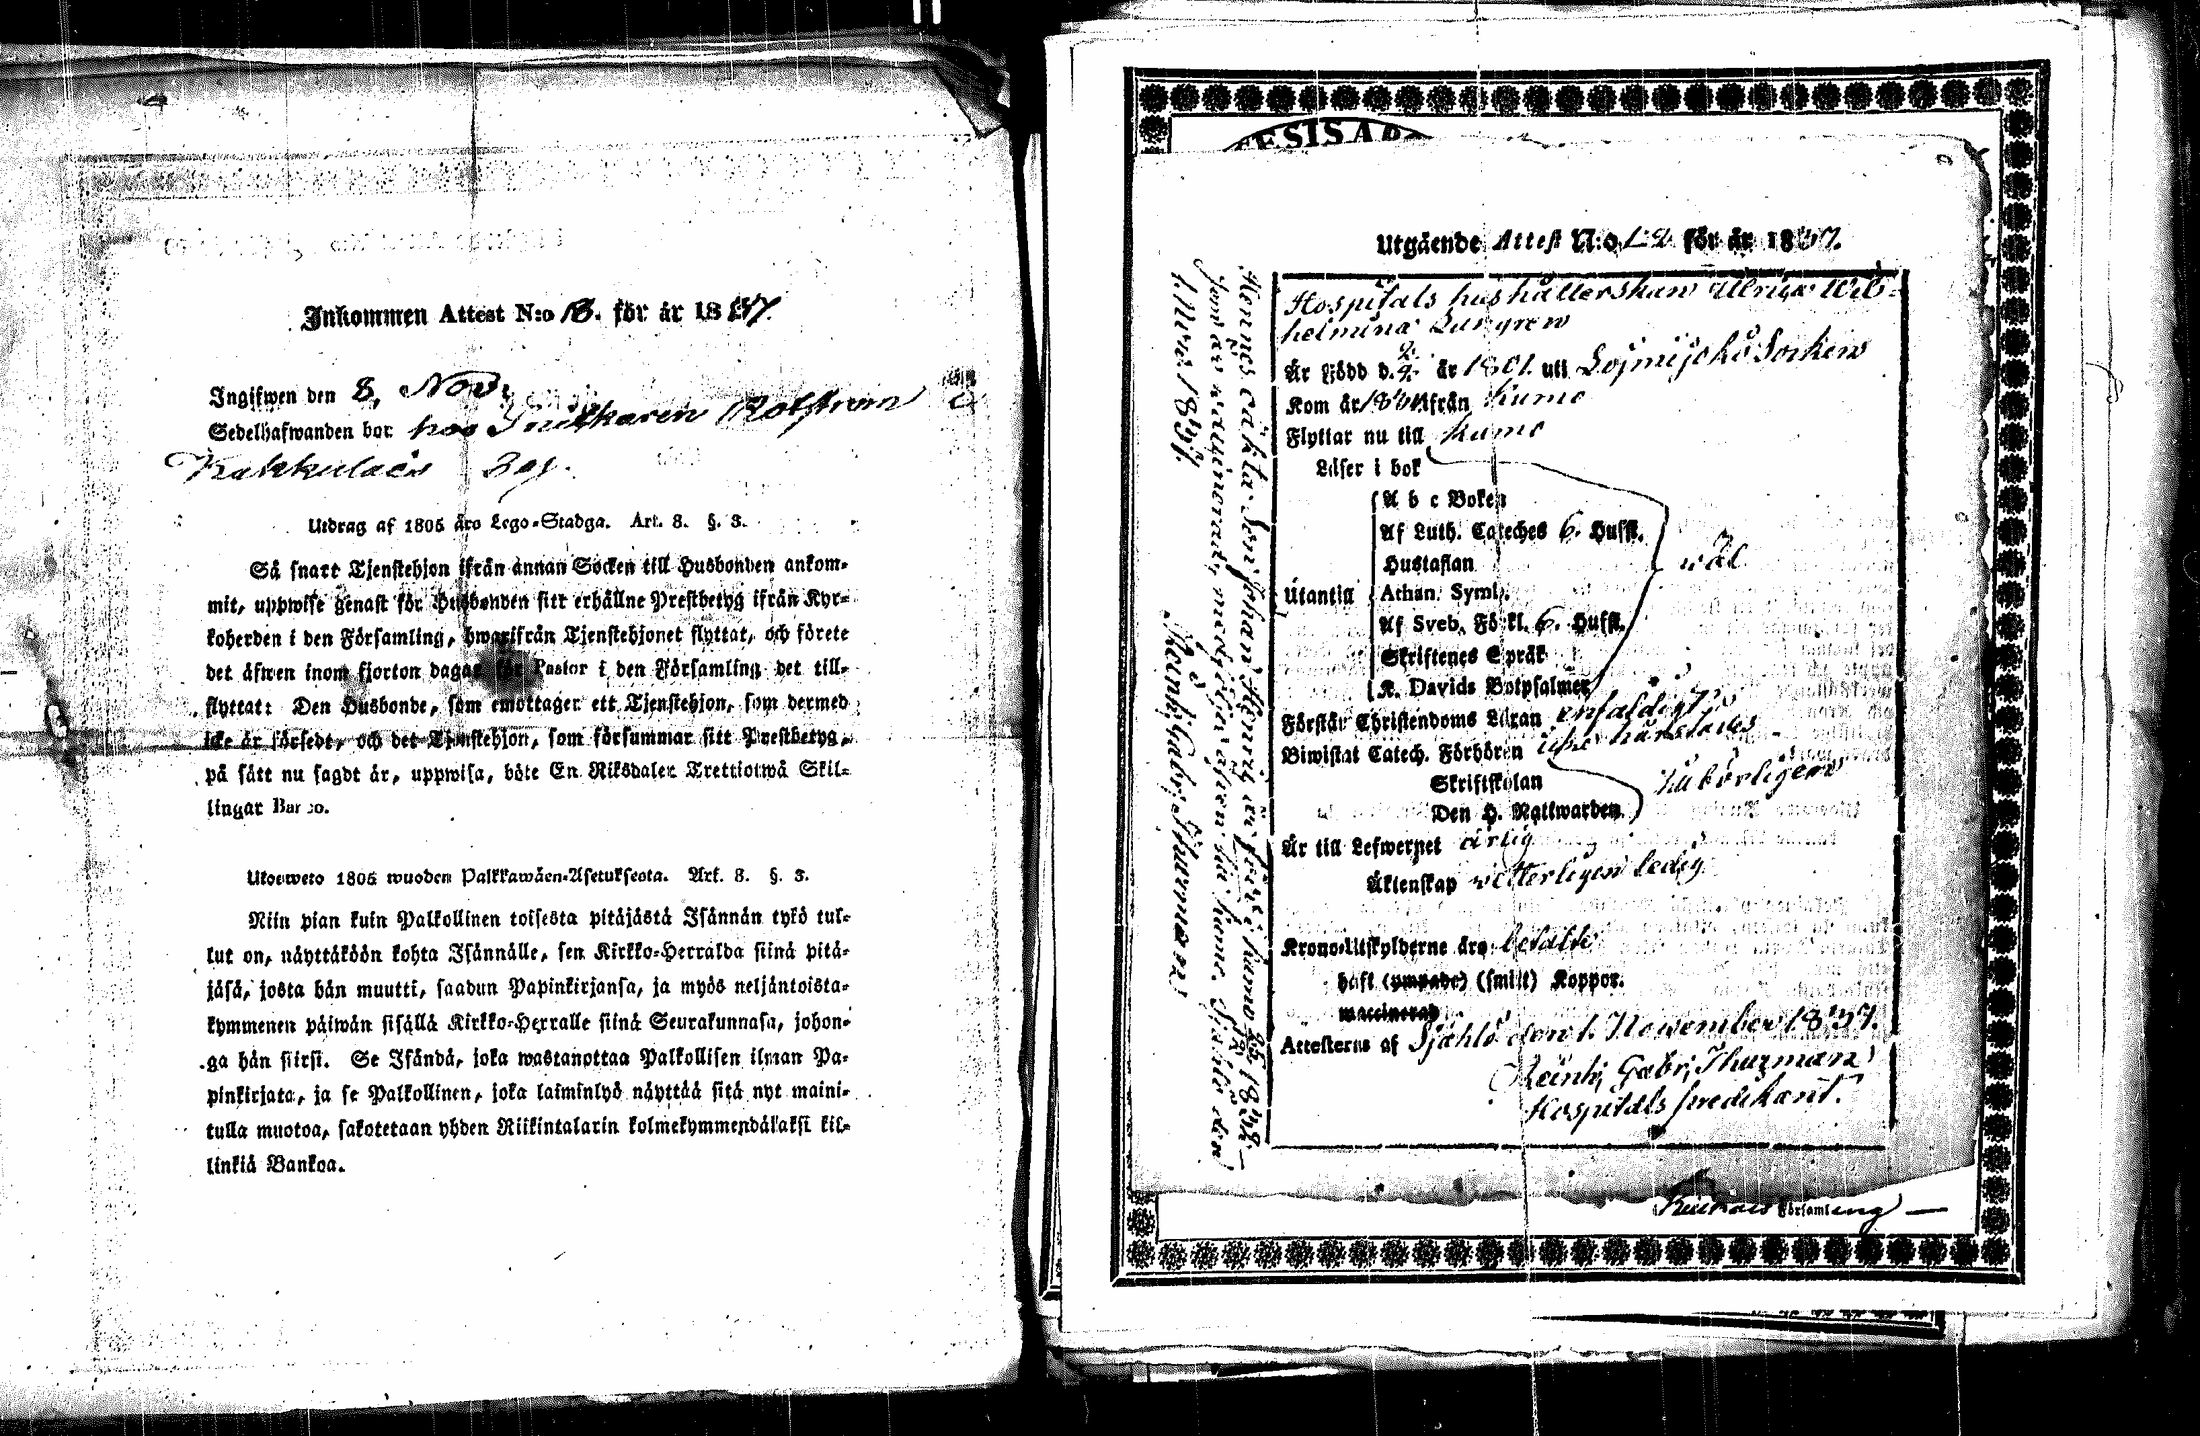 Inkommen Attest N:o 13. för år 1837.
Ingifwen den 8, Nov.
Sedelhafwanden bor hos Snickaren Rolström
Kakkulais
Utdrag af 1805 års Lego-Stadga. Art. 8. §. 3.
Så snart Tjenstehjon ifrån annan Socken till Husbonden ankom-
mit, uppwise genast för Husbonden sitt erhållne Prestbetyg ifrån Kyr-
koherden i den Församling, hwarifrån Tjenstehjonet flyttat, och förete
det äfwen inom fjorton dagar för Pastor i den Församling det till-
flyttat: Den Husbonde, som emottager ett Tjenstehjon, som dermed
icke är försedt, och det Tjenstehjon, som försummar sitt Prestbetyg,
på sätt nu sagdt är, uppwisa, böte En Riksdaler Trettiotwå Skil-
lingar Banco.
Utoweto 1805 wuoden Palkkawäen-Asetuksesta. Art. 8. §. 3.
Niin pian kuin Palkollinen toisesta pitäjästä Isännän tykö tul-
lut on, näyttäköön kohta Isännälle, sen Kirkko-Herralda siinä pitä-
jäsä, josta hän muutti, saadun Papinkirjansa, ja myös neljäntoista-
kymmenen päiwän sisällä Kirkko-Herralle siinä Seurakunnasa, johon-
ga hän siirsi. Se Isändä, joka wastanottaa Palkollisen ilman Pa-
pinkirjata, ja se Palkollinen, joka laiminlyö näyttää sitä nyt maini-
tulla muotoa, sakotetaan yhden Riikintalarin kolmekymmendäkaksi kil-
linkiä Bankoa.
Utgående Attest N:o 12 för år 1837.
Hospitals hushållerskan Ulrica Wil-
helmina Lungren
Är Född d. år 1801. uti Loimijoki Socken
Kom år ifrån Kumo
Flyttar nu till Kumo
Läser i bok
A b c Boken
Af Luth. Cateches 6. Hufst.
Hustaflan wäl
Utantill Athan. Symb.
Af Sveb. Förkl. 6. Hufst.
Skriftenes Språk
K. Davids Botpsalmer
Förstår Christendoms Läran enfaldigt
Biwistat Catech. Förhören icke härstädes
Skriftskolan häborligen
Den H. Nattwarden
Är till Lefwernet ärlig
Äktenskap wetterligen ledig
Krono-Utskylderne äro betalte
haft (ympade) (smitt) Koppor.
waccinerad
Attesteras af Sjählö den 1. November 1837.
Reinh; Gabr; Thurman
Hospitals predikant.
Hennes oäkta Son Johan Henric är född i Kumo
som är waccinerad, medföljer äfven nu henne. Sjählö den
1. Nov. 1837.
Reinh; Gabr; Thurman
Församling